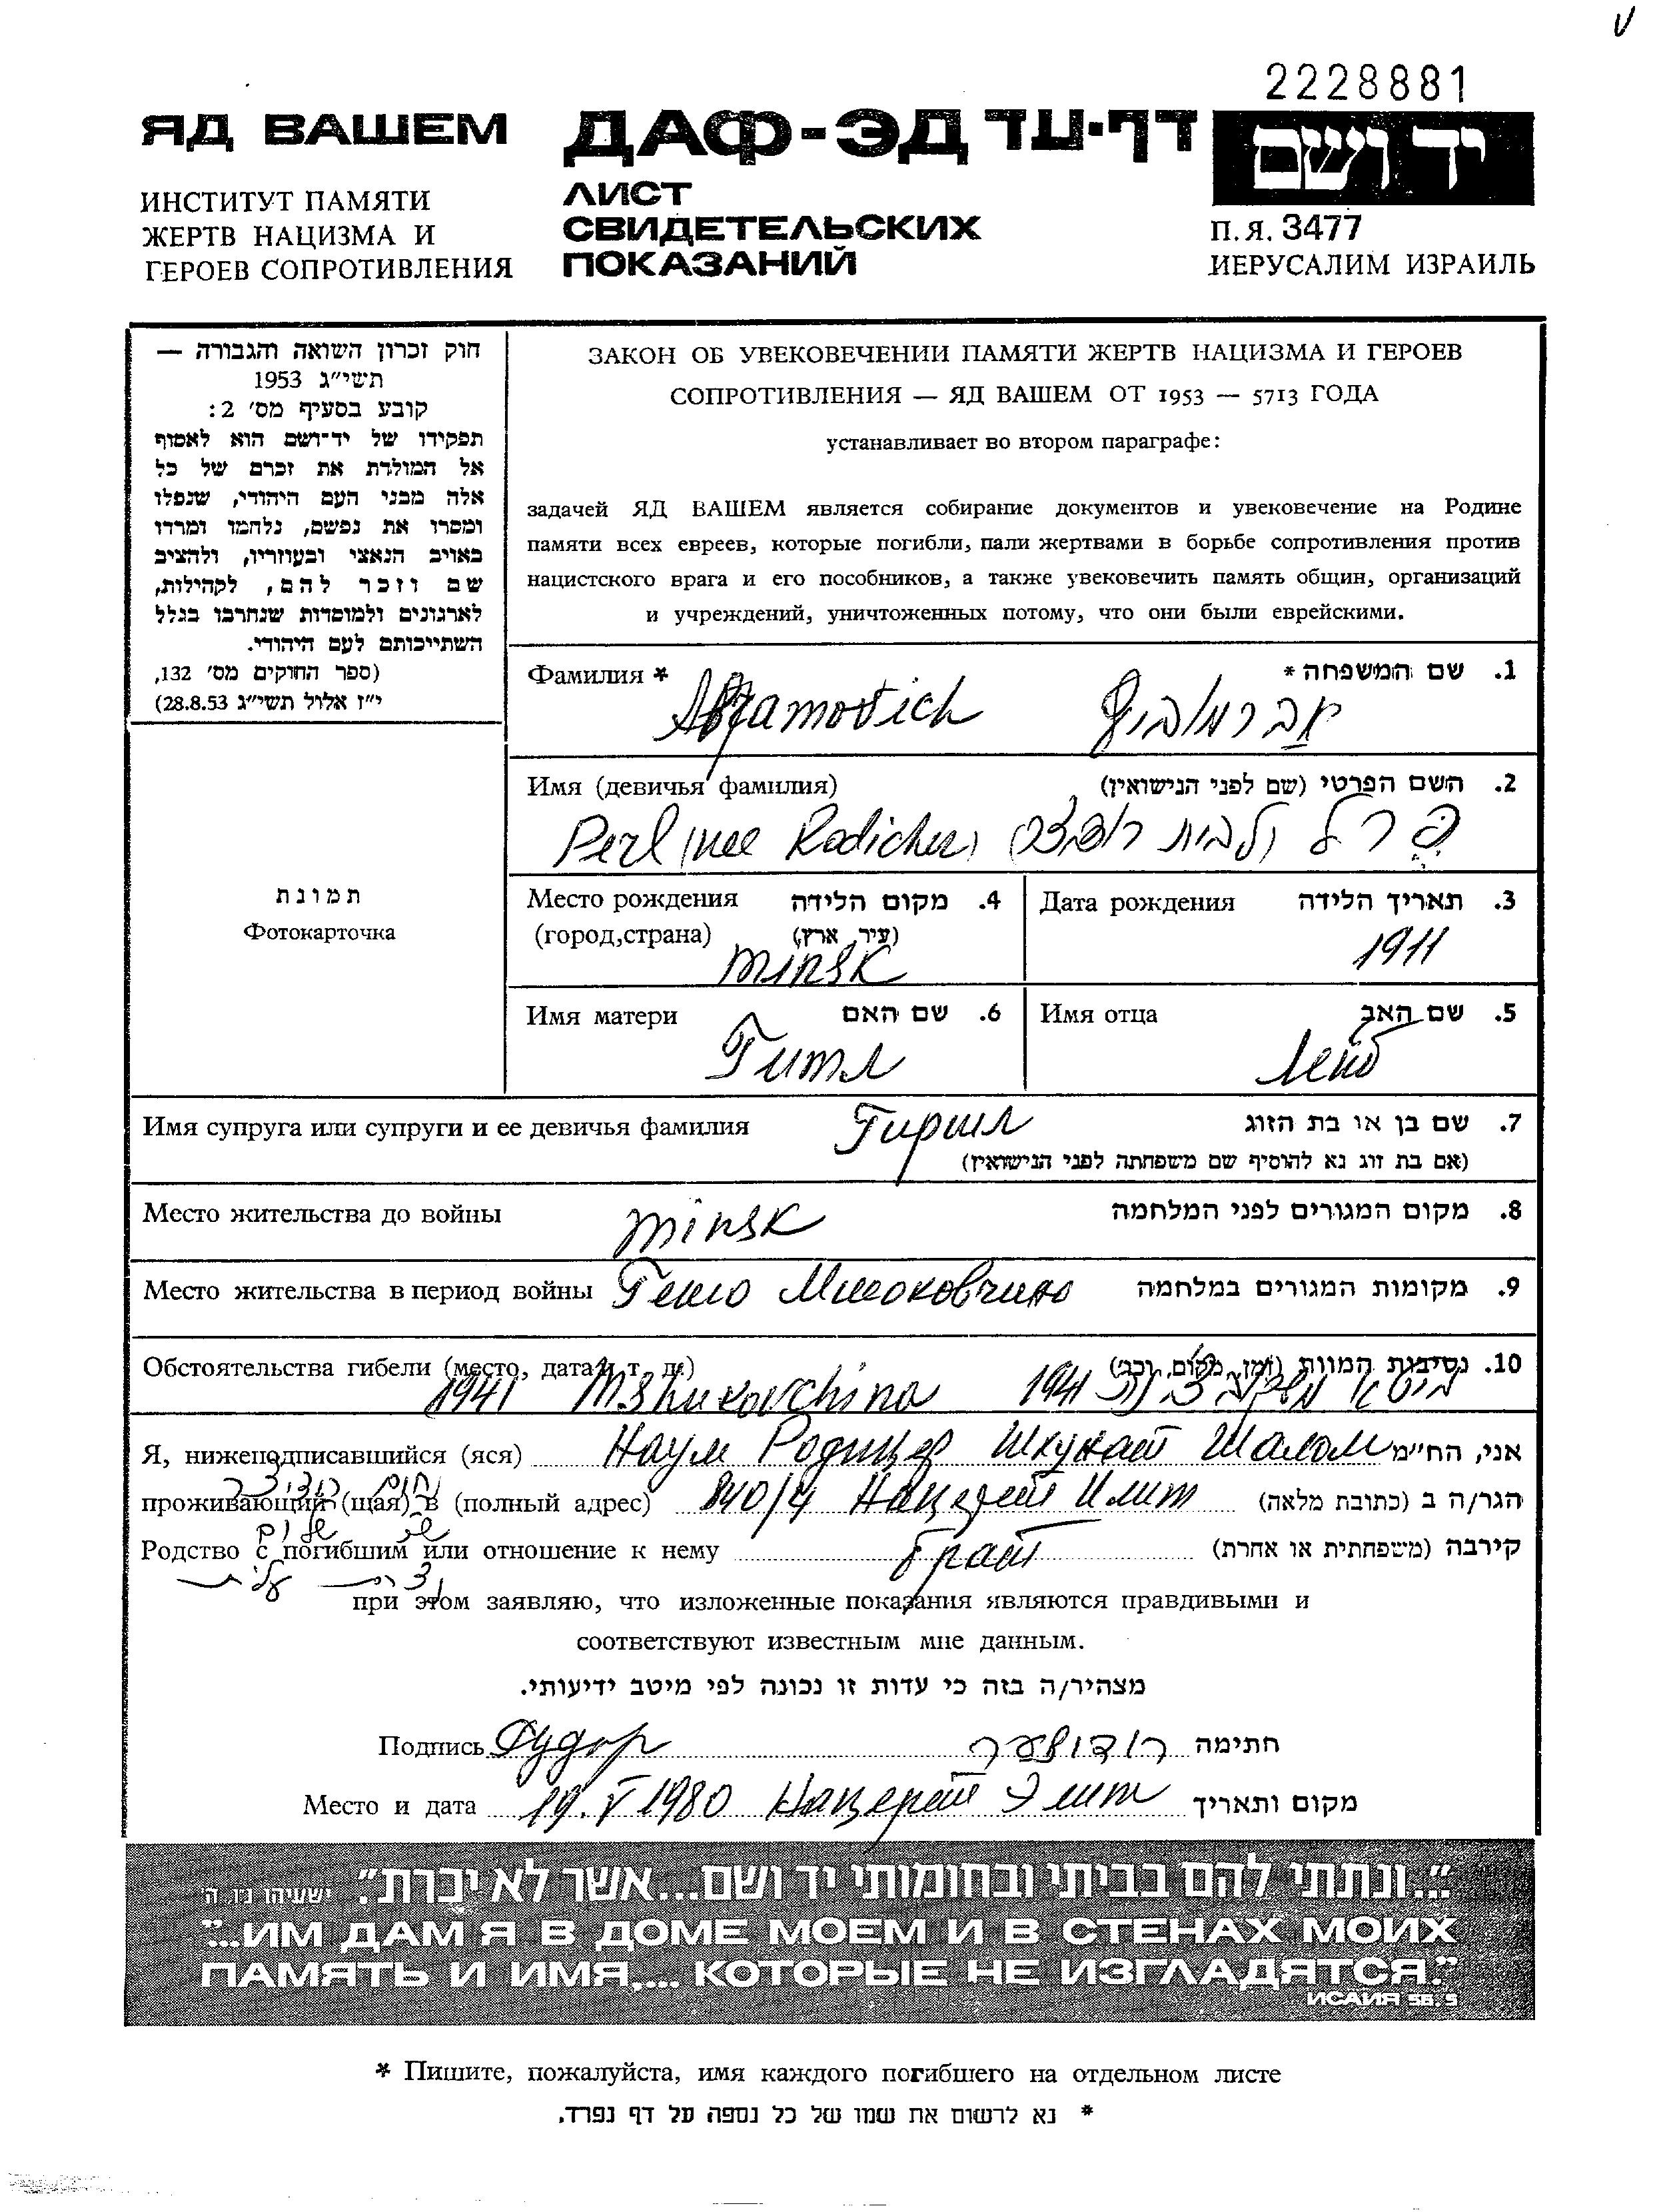 2228881
ЯД ВАШЕМ
ИНСТИТУТ ПАМЯТИ
ЖЕРТВ НАЦИЗМА И
ГЕРОЕВ СОПРОТИВЛЕНИЯ
ДАФ-ЭД דף-עד
ЛИСТ
СВИДЕТЕЛЬСКИХ
ПОКАЗАНИЙ
יד ושם
П.Я. 3477
ИЕРУСАЛИМ ИЗРАИЛЬ
חוק זכרון השואה והגבורה —
תשי״ג 1953
קובע בסעיף מס׳ 2:
תפקידו של יד־ושם הוא לאסוף
אל המולדת את זכרם של כל
אלה מבני העם היהודי, שנפלו
ומסרו את נפשם, נלחמו ומרדו
באויב הנאצי ובעוזריו, ולהציב
שם וזכר להם, לקהילות,
לארגונים ולמוסדות שנחרבו בגלל
השתייכותם לעם היהודי.
(ספר החוקים מס׳ 132,
י״ז אלול תשי״ג 28.8.53)
ЗАКОН ОБ УВЕКОВЕЧЕНИИ ПАМЯТИ ЖЕРТВ НАЦИЗМА И ГЕРОЕВ
СОПРОТИВЛЕНИЯ — ЯД ВАШЕМ ОТ 1953 — 5713 ГОДА
устанавливает во втором параграфе:
задачей ЯД ВАШЕМ является собирание документов и увековечение на Родине
памяти всех евреев, которые погибли, пали жертвами в борьбе сопротивления против
нацистского врага и его пособников, а также увековечить память общин, организаций
и учреждений, уничтоженных потому, что они были еврейскими.
תמונת
Фотокарточка
Фамилия * 1. שם המשפחה *
Abramovich אברמוביץ
Имя (девичья фамилия) 2. השם הפרטי (שם לפני הנישואין)
Perl (nee Rodicher) פרל (לבית
Место рождения 4. מקום הלידה
(город,страна) (עיר, ארץ)
Minsk
Дата рождения 3. תאריך הלידה
1911
Имя матери 6. שם האם
Гитл
Имя отца 5. שם האב
Лейб
Имя супруга или супруги и ее девичья фамилия Гиршл 7. שם בן או בת הזוג
(אם בת זוג נא להוסיף שם משפחתה לפני הנישואין)
Место жительства до войны Minsk 8. מקום המגורים לפני המלחמה
Место жительства в период войны 9. מקומות המגורים במלחמה
Обстоятельства гибели (место, дата и т. д.) 10. נסיבות המוות (זמן, מקום, וכו׳)
1941 Mshukovchina 1941
Я, нижеподписавшийся (яся) Наум Родицер Шкунат Шалом אני, הח״מ
проживающий (щая) в (полный адрес) 840/4 Нацерет Илит הגר/ה ב (כתובת מלאה)
Родство с погибшим или отношение к нему брат קירבה (משפחתית או אחרת)
при этом заявляю, что изложенные показания являются правдивыми и
соответствуют известным мне данным.
מצהיר/ה בזה כי עדות זו נכונה לפי מיטב ידיעותי.
Подпись חתימה
Место и дата 19.V 1980 Нацерет Элит מקום ותאריך
״...ונתתי להם בביתי ובחומותי יד ושם...אשר לא יכרת״. ישעיהו נ״ו, ה׳
"...ИМ ДАМ Я В ДОМЕ МОЕМ И В СТЕНАХ МОИХ
ПАМЯТЬ И ИМЯ,... КОТОРЫЕ НЕ ИЗГЛАДЯТСЯ."
ИСАИЯ 56.5
* Пишите, пожалуйста, имя каждого погибшего на отдельном листе
* נא לרשום את שמו של כל נספה על דף נפרד.